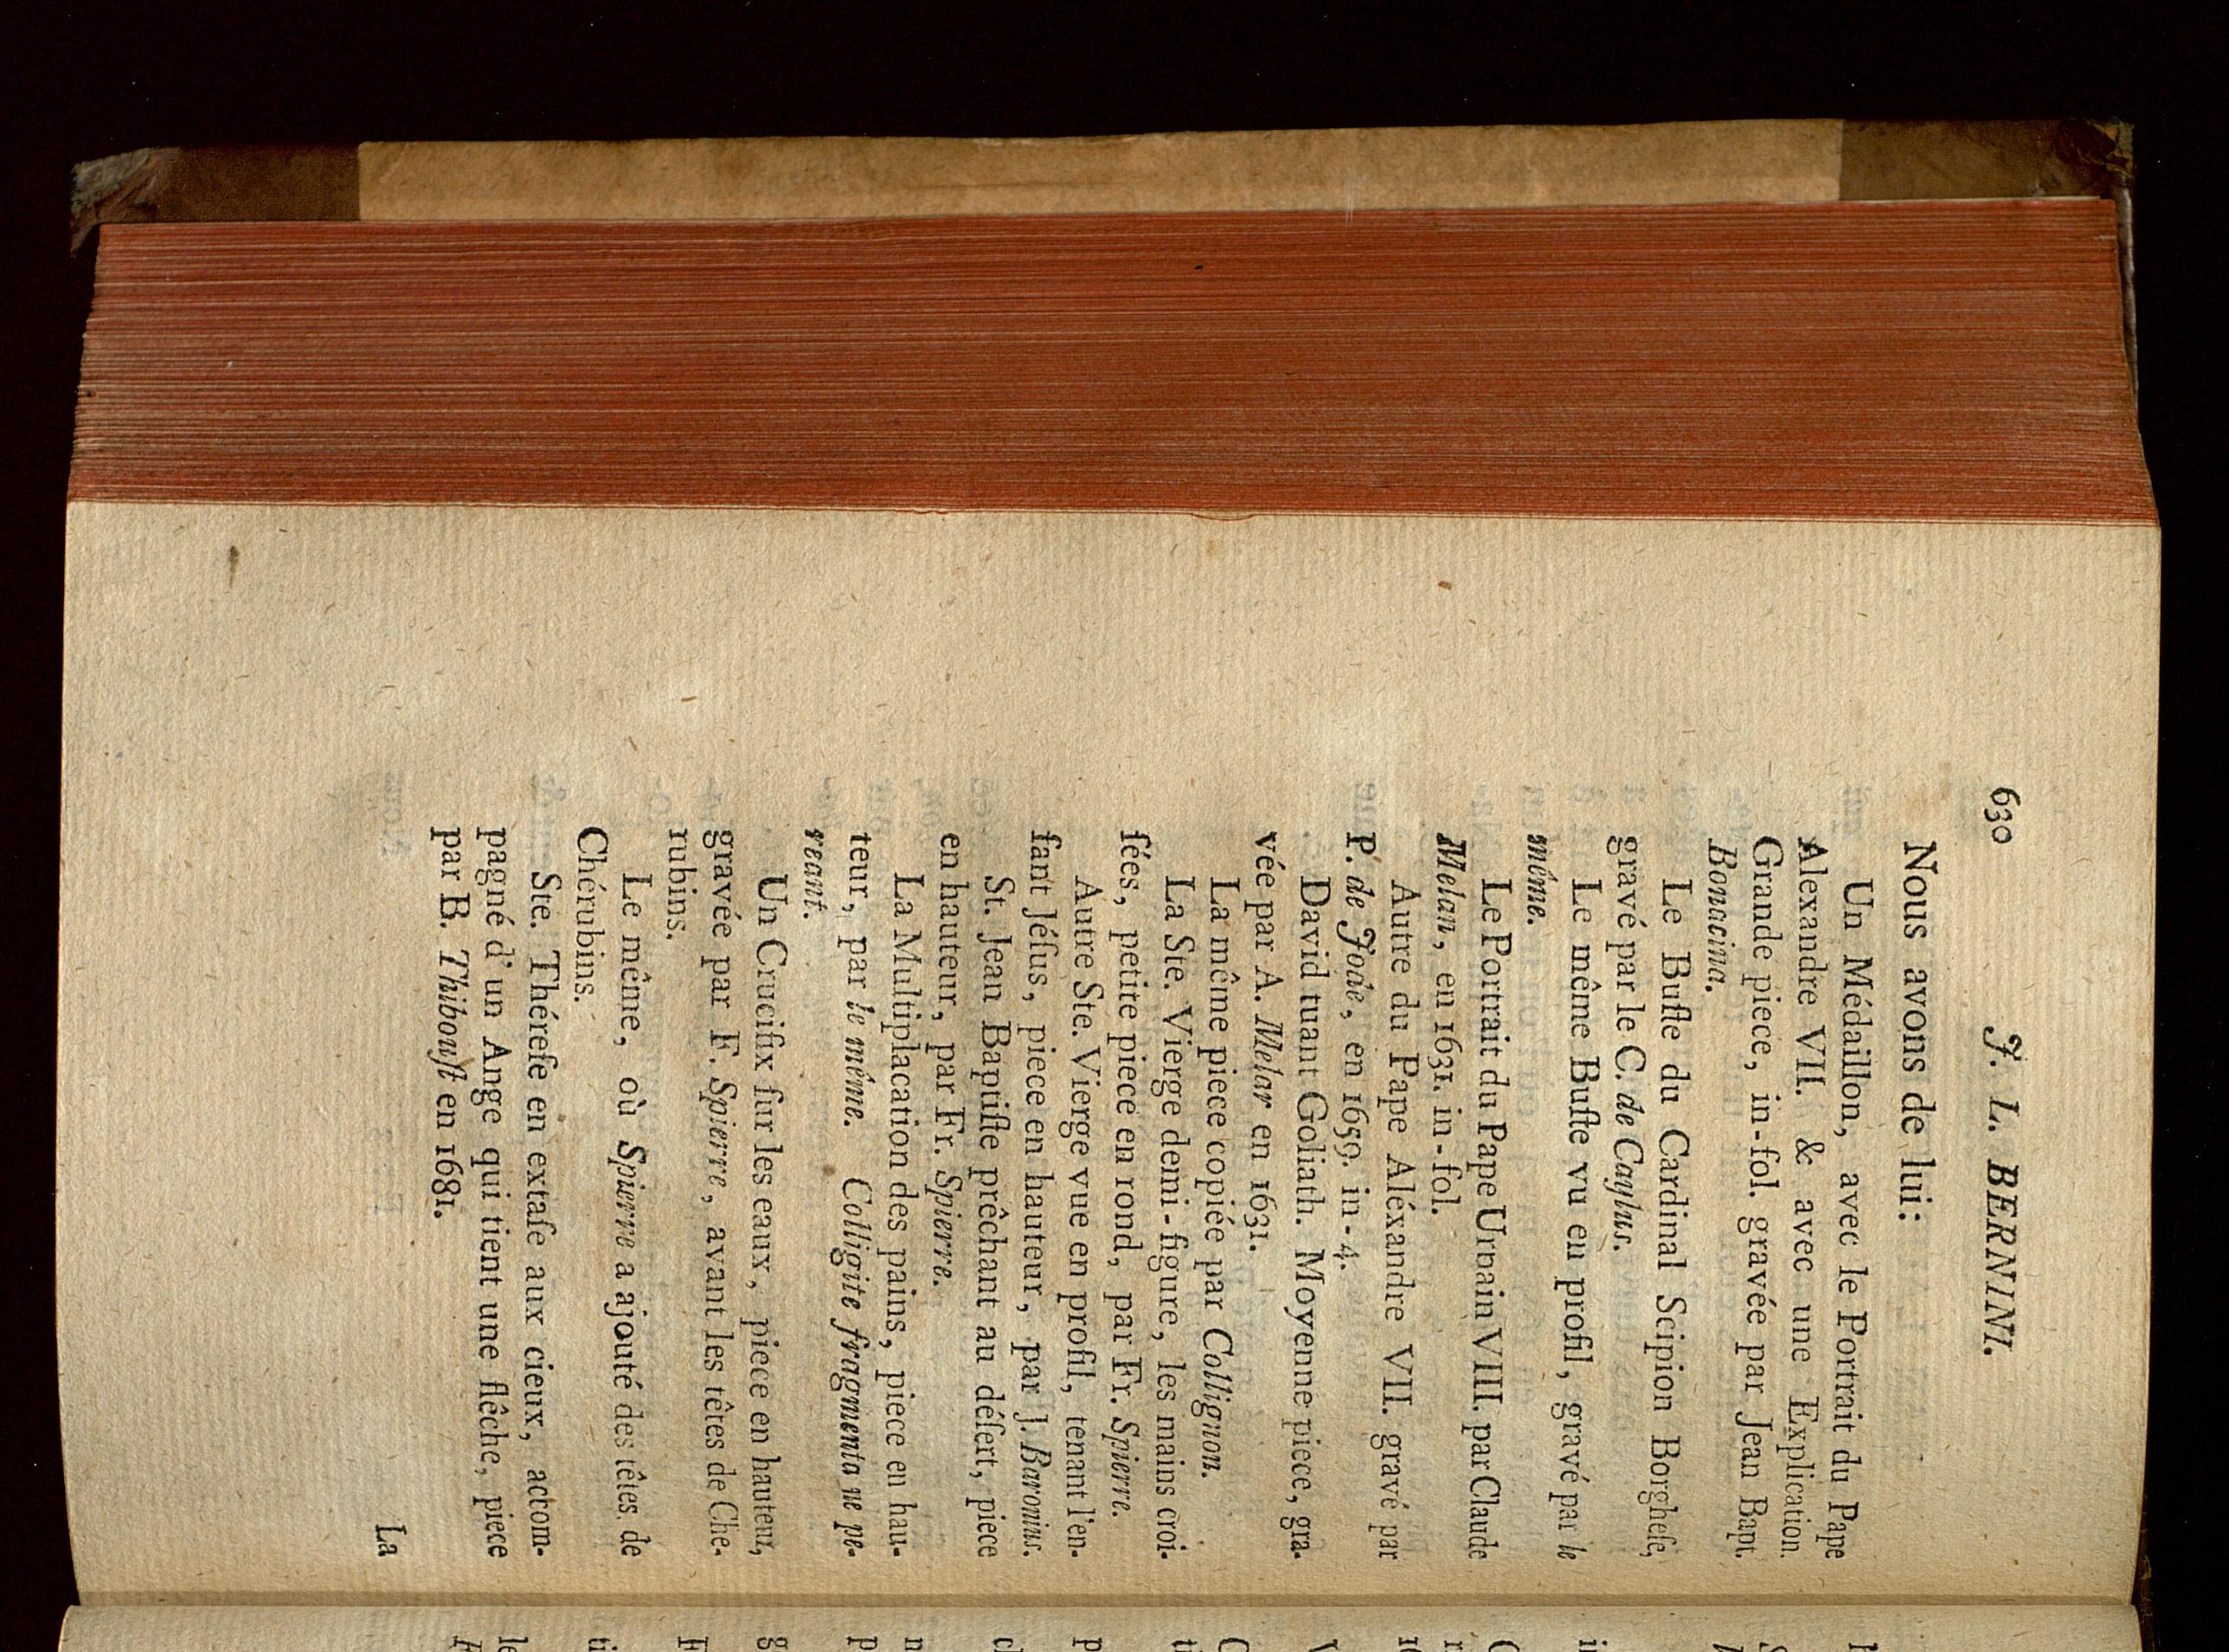 630 J. L. BERNINI.
Nous avons de lui:
Un Médaillon, avec le Portrait du Pape
Alexandre VII. & avec une Explication.
Grande piece, in-fol. gravée par Jean Bapt.
Bonacina.
Le Buſte du Cardinal Scipion Borgheſe,
gravé par le C. de Caylus.
Le même Buſte vu en profil, gravé par le
même.
Le Portrait du Pape Urbain VIII. par Claude
Melan, en 1631. in-fol.
Autre du Pape Aléxandre VII. gravé par
P. de Jode, en 1659. in-4.
David tuant Goliath. Moyenne piece, gra-
vée par A. Melar en 1631.
La même piece copiée par Collignon.
La Ste. Vierge demi-figure, les mains croi-
ſées, petite piece en rond, par Fr. Spierre.
Autre Ste. Vierge vue en profil, tenant l'en-
fant Jéſus, piece en hauteur, par J. Baronius.
St. Jean Baptiſte prêchant au déſert, piece
en hauteur, par Fr. Spierre.
La Multiplacation des pains, piece en hau-
teur, par le même. Colligite fragmenta ne pe-
reant.
Un Crucifix ſur les eaux, piece en hauteur,
gravée par F. Spierre, avant les têtes de Che-
rubins.
Le même, où Spierre a ajouté des têtes de
Chérubins.
Ste. Théreſe en extaſe aux cieux, accom-
pagné d'un Ange qui tient une flêche, piece
par B. Thibouſt en 1681.
La